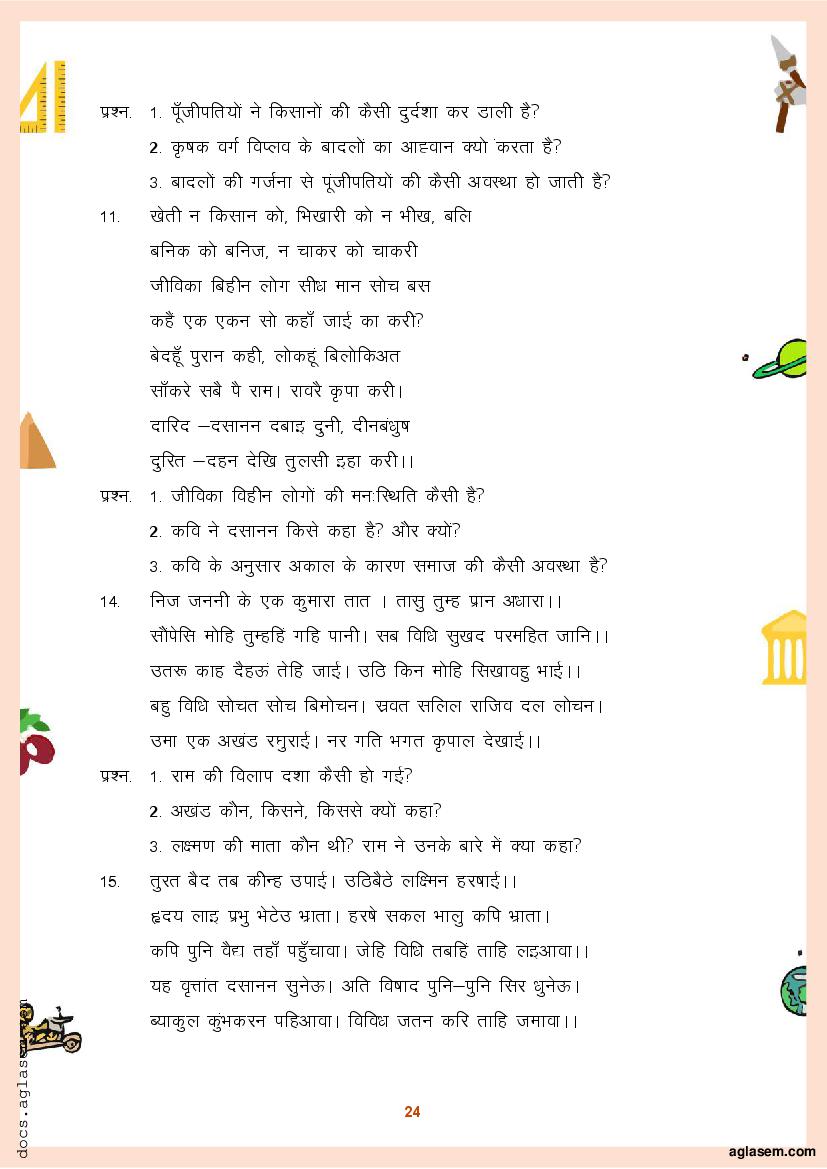 प्रश्न. 1. पूँजीपतियों ने किसानों की कैसी दुर्दशा कर डाली है?
2. कृषक वर्ग विप्लव के बादलों का आह्वान क्यो ंकरता है?
3. बादलों की गर्जना से पूंजीपतियों की कैसी अवस्था हो जाती है?
11. खेती न किसान को, भिखारी को न भीख, बलि
बनिक को बनिज, न चाकर को चाकरी
जीविका बिहीन लोग सीध मान सोच बस
कहैं एक एकन सो कहाँ जाई का करी?
बेदहूँ पुरान कही, लोकहूं बिलोकिअत
साँकरे सबै पै राम। रावरै कृपा करी।
दारिद –दसानन दबाइ दुनी, दीनबंधुष
दुरित –दहन देखि तुलसी इहा करी।।
प्रश्न. 1. जीविका विहीन लोगों की मनःस्थिति कैसी है?
2. कवि ने दसानन किसे कहा है? और क्यों?
3. कवि के अनुसार अकाल के कारण समाज की कैसी अवस्था है?
14. निज जननी के एक कुमारा तात । तासु तुम्ह प्रान अधारा।।
सौंपेसि मोहि तुम्हहिं गहि पानी। सब विधि सुखद परमहित जानि।।
उतरू काह दैहऊं तेहि जाई। उठि किन मोहि सिखावहु भाई।।
बहु विधि सोचत सोच बिमोचन। स्रवत सलिल राजिव दल लोचन।
उमा एक अखंड रघुराई। नर गति भगत कृपाल देखाई।।
प्रश्न. 1. राम की विलाप दशा कैसी हो गई?
2. अखंड कौन, किसने, किससे क्यों कहा?
3. लक्ष्मण की माता कौन थी? राम ने उनके बारे में क्या कहा?
15. तुरत बैद तब कीन्ह उपाई। उठिबैठे लक्ष्मिन हरषाई।।
हृदय लाइ प्रभु भेटेउ भ्राता। हरषे सकल भालु कपि भ्राता।
कपि पुनि वैद्य तहाँ पहुँचावा। जेहि विधि तबहिं ताहि लइआवा।।
यह वृत्तांत दसानन सुनेऊ। अति विषाद पुनि–पुनि सिर धुनेऊ।
ब्याकुल कुंभकरन पहिआवा। विविध जतन करि ताहि जमावा।।
24
aglasem.com